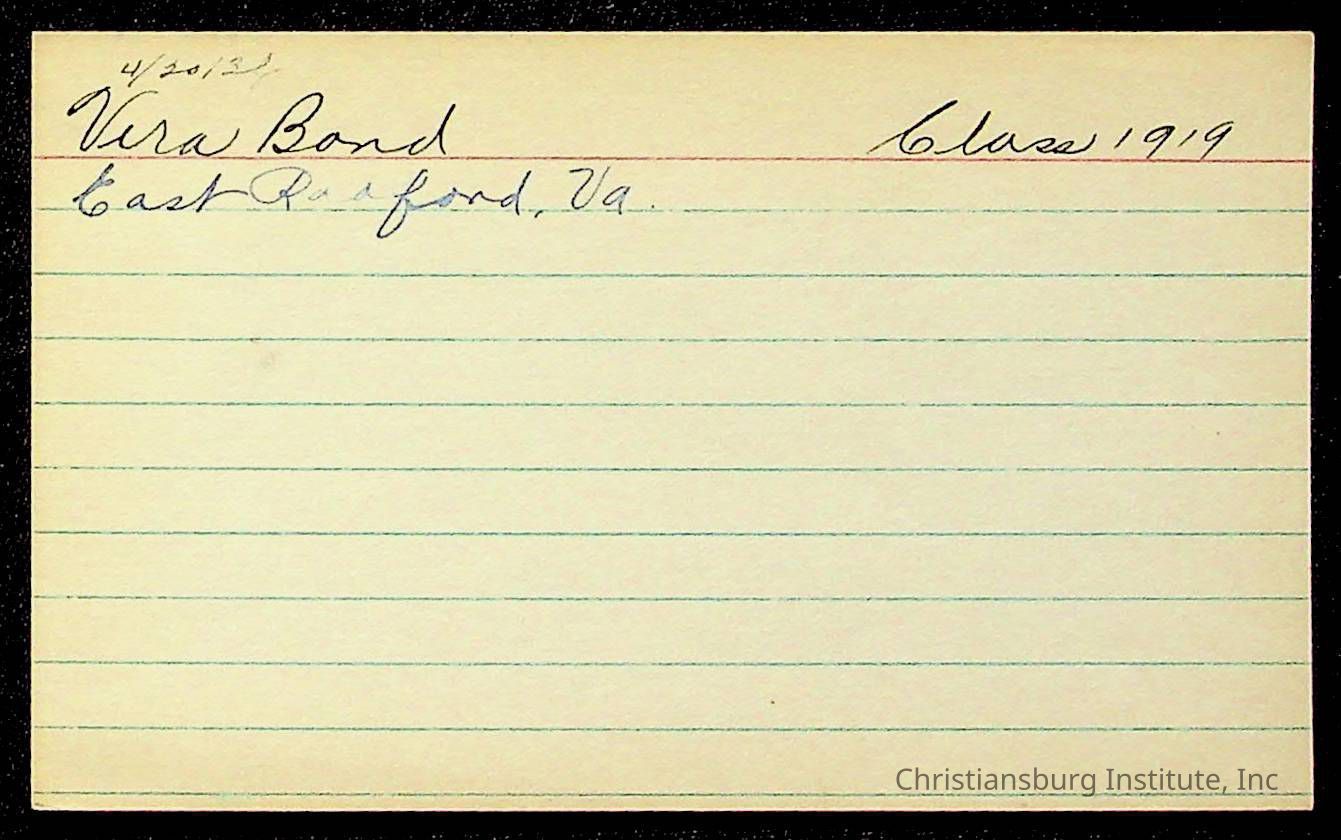 Vera Bond Class 1919
East Radford, Va.
Christiansburg Institute, Inc